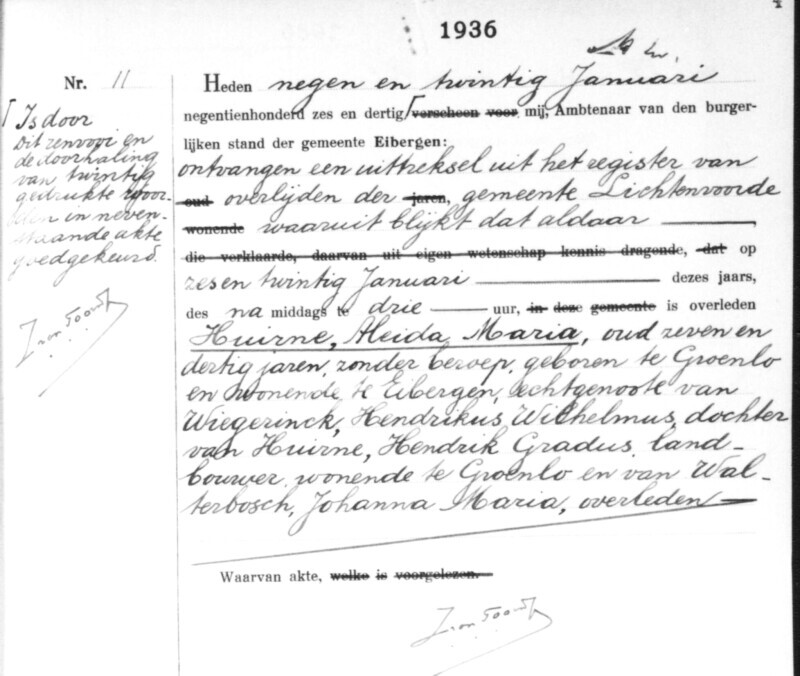 1936
Nr. 11
Is door
dit renvooi en
de doorhaling
van twintig
gedrukte woor-
den in neven-
staande akte
goedgekeurd.
Heden negen en twintig Januari
negentienhonderd zes en dertig verscheen voor mij, Ambtenaar van den burger-
lijken stand der gemeente Eibergen:
ontvangen een uittreksel uit het register van
oud overlijden der jaren, gemeente Lichtenvoorde
wonende waaruit blijkt dat aldaar
die verklaarde, daarvan uit eigen wetenschap kennis dragende, dat op
zes en twintig Januari dezes jaars,
des na middags te drie uur, in deze gemeente is overleden
Huirne, Aleida Maria, oud zeven en
dertig jaren, zonder beroep, geboren te Groenlo
en wonende te Eibergen, echtgenoote van
Wiegerinck, Hendrikus Wilhelmus, dochter
van Huirne, Hendrik Gradus, land-
bouwer, wonende te Groenlo en van Wal-
terbosch, Johanna Maria, overleden
Waarvan akte, welke is voorgelezen.